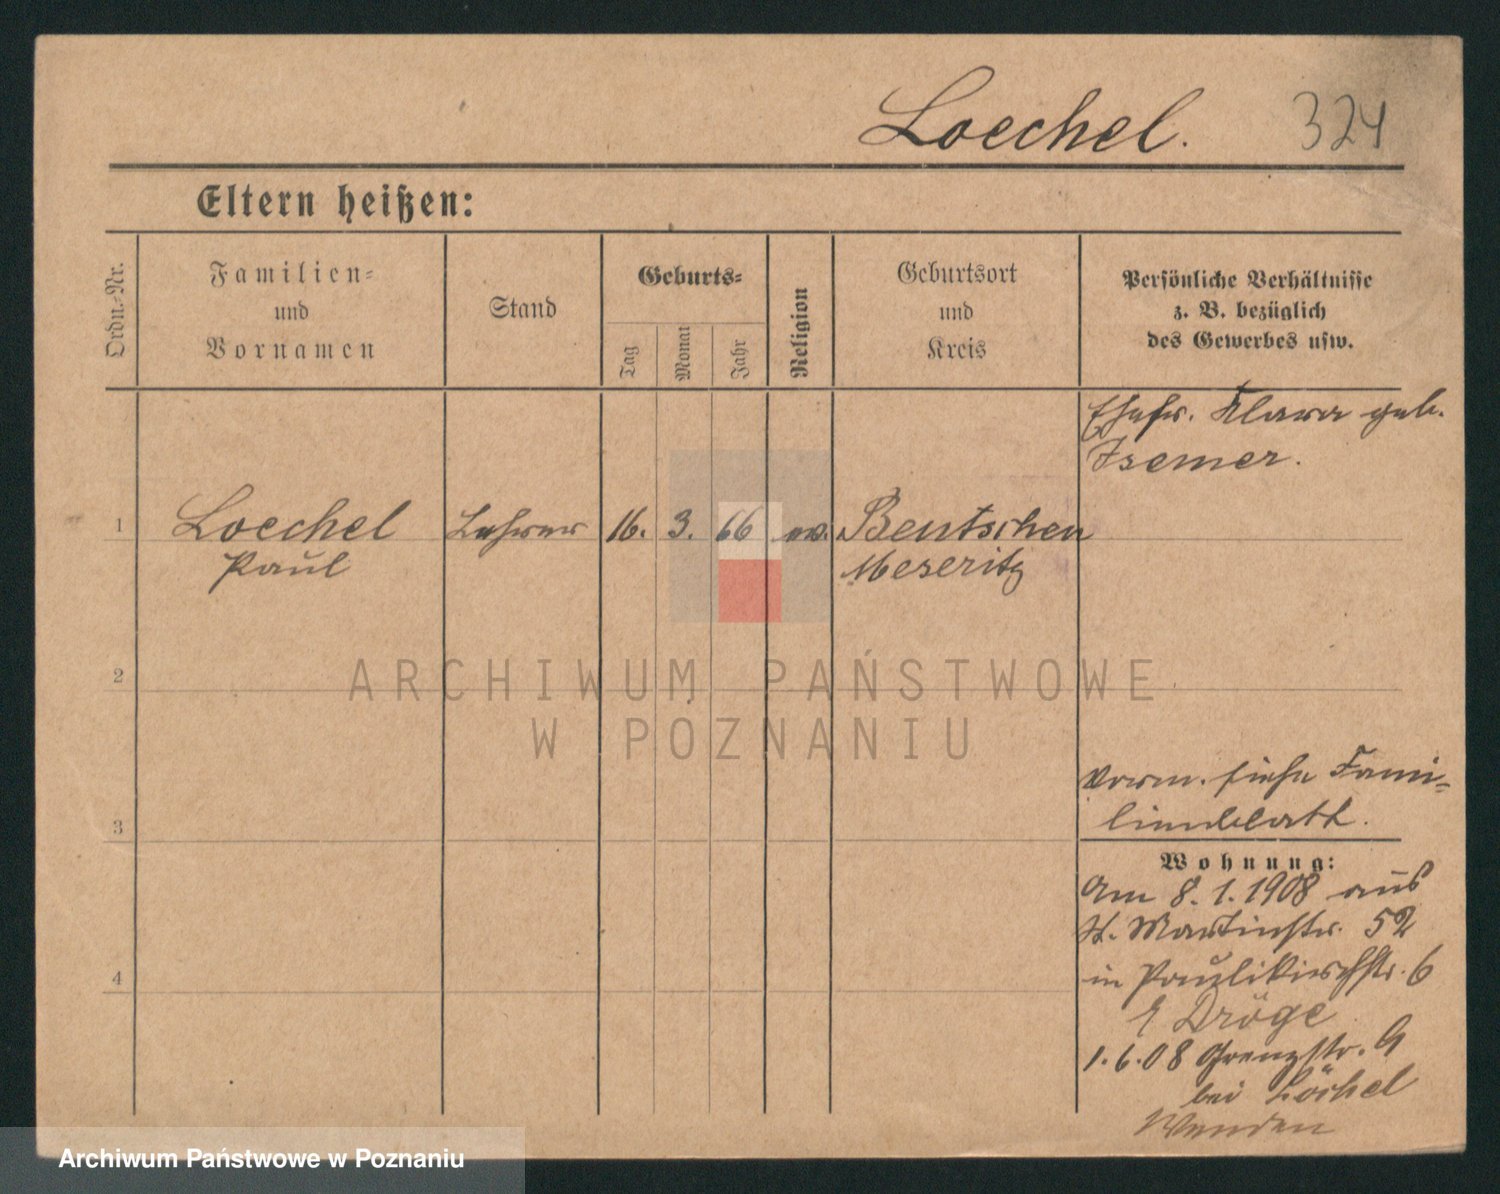 Loechel. 324
Eltern heißen:
Ordn.-Nr.
Familien-
und
Vornamen
Stand
Geburts-
Tag
Monat
Jahr
Religion
Geburtsort
und
Kreis
Persönliche Verhältnisse
z. B. bezüglich
des Gewerbes usw.
Ehefr. Klara geb.
Isemer.
1 Loechel Lehrer 16. 3. 66 ev. Bentschen
Paul Meseritz
2
ARCHIWUM PAŃSTWOWE
W POZNANIU
Vorm. siehe Fami-
lienblatt.
3
Wohnung:
Am 8. 1. 1908 aus
St. Martinstr. 52
in Paulikirchstr. 6
Dröge
4
1. 6. 08 Grenzstr.
bei Löchel
Archiwum Państwowe w Poznaniu